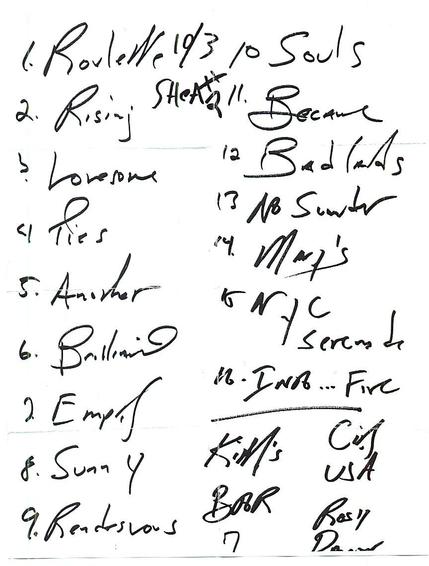 1. Roulette 10/3
2. Rising
3. Lonesome
4 Ties
5. Another
6. Brilliant
7 Empty
8. Sunny
9. Rendezvous
10 Souls
SHEA
11. Became
12 Badlands
13 No Surrender
14. Mary's
15 NYC
Serenade
16. INTO... Fire
Kitty's
City
USA
BORR
Rosy
7